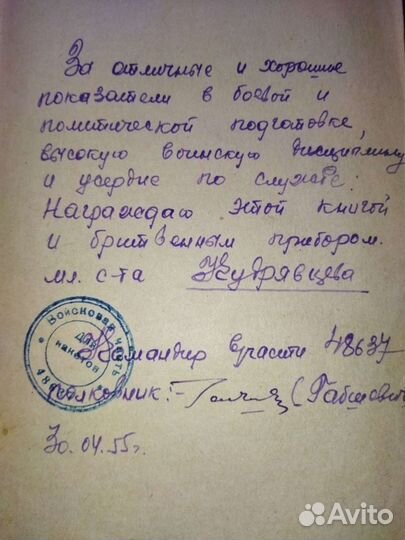 За отличные и хорошие
показатели в боевой и
политической подготовке,
высокую воинскую дисциплину
и усердие по службе:
Награждаю этой книгой
и бритвенным прибором.
мл. с-та Кудрявцева
Войсковая часть
Для пакетов
Командир в/части 48637
полковник:-
30.04.55г.
Avito